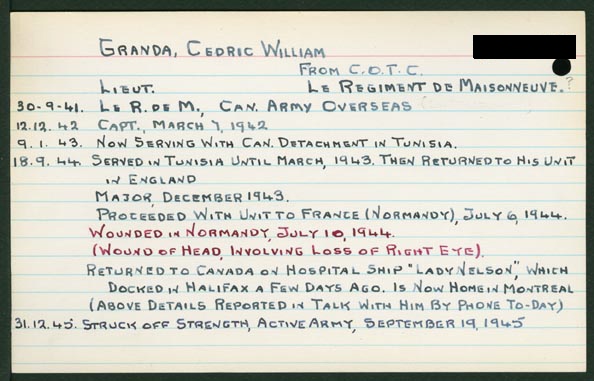 GRANDA, CEDRIC WILLIAM
FROM C.O.T.C.
LIEUT. LE REGIMENT DE MAISONNEUVE.?
30-9-41. LE R. DE M., CAN. ARMY OVERSEAS
12.12.42 CAPT., MARCH 7, 1942
9.1.43. NOW SERVING WITH CAN. DETACHMENT IN TUNISIA.
18.9.44. SERVED IN TUNISIA UNTIL MARCH, 1943. THEN RETURNED TO HIS UNIT
IN ENGLAND
MAJOR, DECEMBER 1943.
PROCEEDED WITH UNIT TO FRANCE (NORMANDY), JULY 6, 1944.
WOUNDED IN NORMANDY, JULY 10, 1944.
(WOUND OF HEAD, INVOLVING LOSS OF RIGHT EYE).
RETURNED TO CANADA ON HOSPITAL SHIP "LADY NELSON", WHICH
DOCKED IN HALIFAX A FEW DAYS AGO. IS NOW HOME IN MONTREAL
(ABOVE DETAILS REPORTED IN TALK WITH HIM BY PHONE TO-DAY)
31.12.45. STRUCK OFF STRENGTH, ACTIVE ARMY, SEPTEMBER 19, 1945